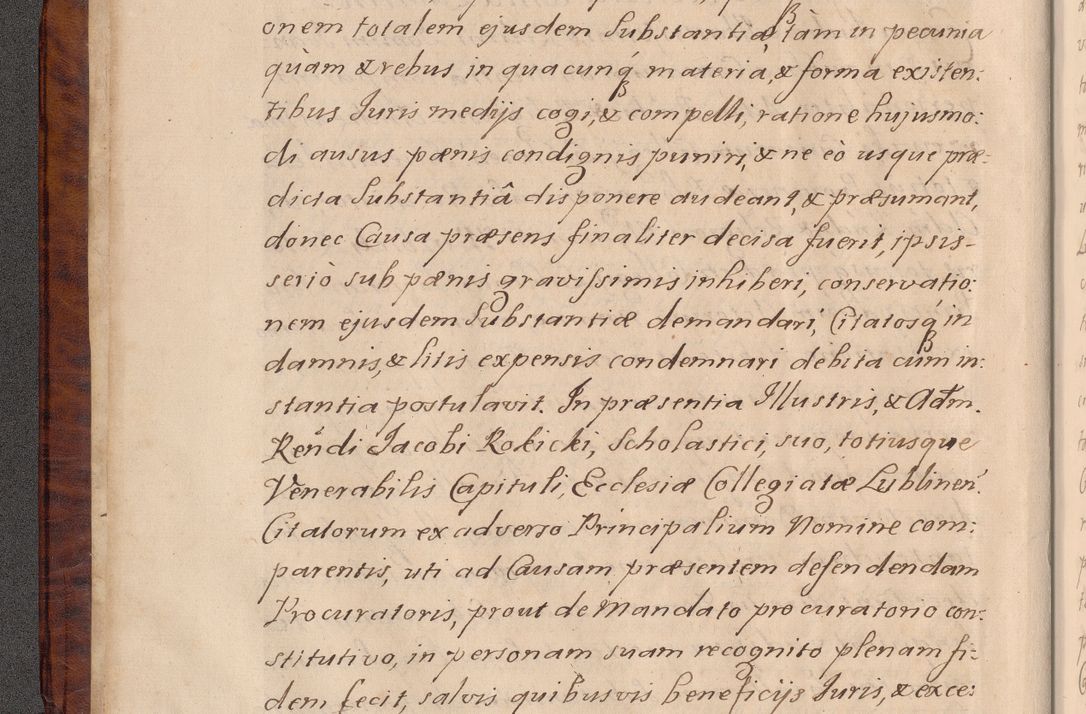 onem totalem ejusdem Substantiæ, tàm in pecunia
quàm & rebus in quacunq́ materia, & forma existen:
tibus Juris medijs cogi, & compelli, ratione hujusmo:
di ausus pænis condignis puniri, & ne eò usque præ:
dicta Substantiâ disponere audeant, & præsumant,
donec Causa præsens finaliter decisa fuerit, ipsis-
seriò sub pænis gravissimis inhiberi, conservatio:
nem ejusdem Substantiæ demandari, Citatosq́ in
damnis, & litis expensis condemnari debita cum in:
stantia postulavit. In præsentia Illustris, & Adm.
Rendi Jacobi Rokicki, Scholastici, suo, totiusque
Venerabilis Capituli, Ecclesiæ Collegiatæ Lublinen.
Citatorum ex adverso Principalium Nomine com:
parentis, uti ad Causam præsentem defendendam
Procuratoris, prout de Mandato procuratorio con:
stitutivo, in personam suam recognito plenam fi:
dem fecit, salvis quibusvis beneficijs Juris, & exce: